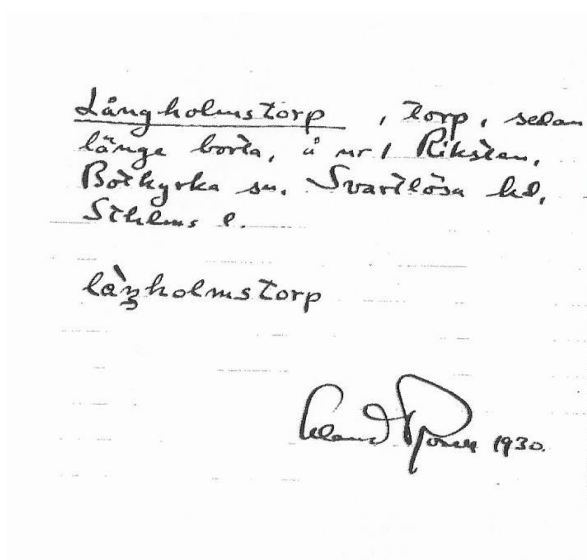 Långholmstorp, torp, sedan
länge borta, å nr 1 Riksten,
Botkyrka sn. Svartlösa hd,
Sthlms l.
làŋholmstorp
1930.